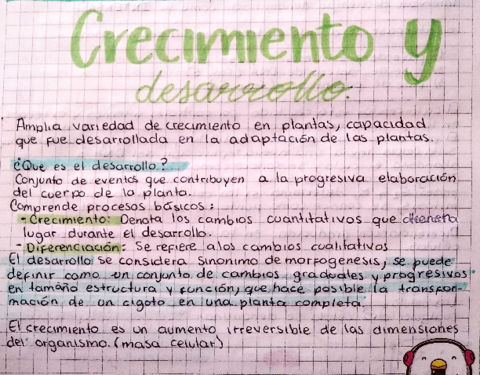 Crecimiento y
desarrollo.
Amplia variedad de crecimiento en plantas, capacidad
que fue desarrollada en la adaptación de las plantas.
¿Qué es el desarrollo?
Conjunto de eventos que contribuyen a la progresiva elaboración
del cuerpo de la planta.
Comprende procesos básicos:
- Crecimiento: Denota los cambios cuantitativos que
lugar durante el desarrollo.
- Diferenciación: Se refiere a los cambios cualitativos
El desarrollo se considera sinonimo de morfogenesis, se puede
definir como un conjunto de cambios graduales y progresivos
en tamaño estructura y función, que hace posible la transfor-
mación de un cigoto en una planta completa.
El crecimiento es un aumento irreversible de las dimensiones
del organismo. (masa celular)